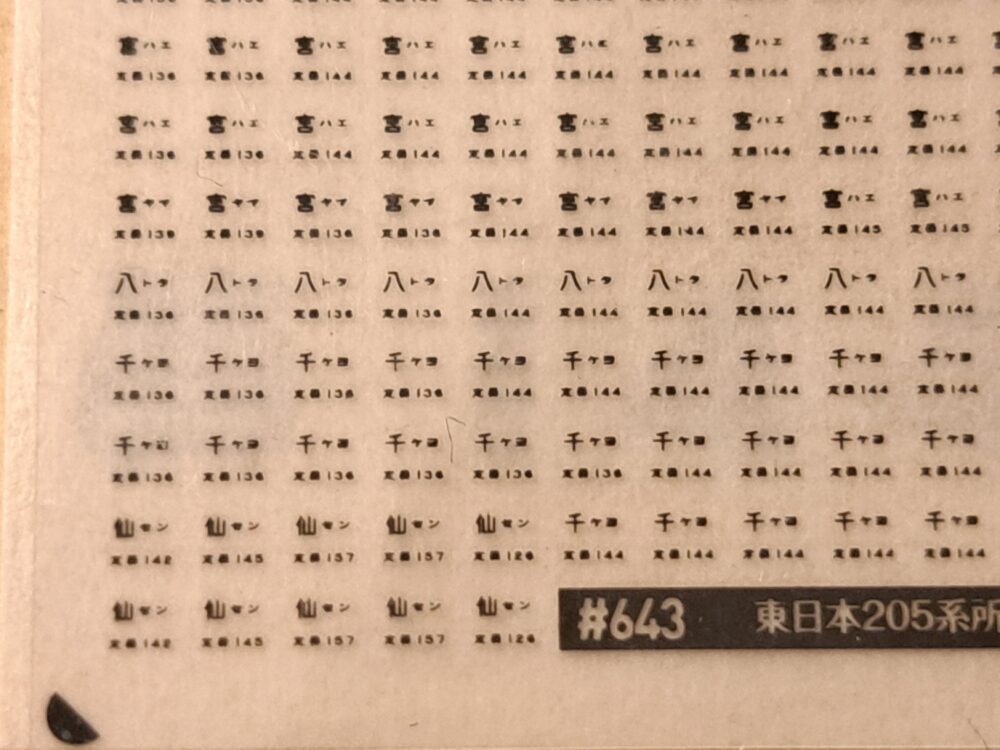 宮ハエ 宮ハエ 宮ハエ 宮ハエ 宮ハエ 宮ハエ 宮ハエ 宮ハエ 宮ハエ 宮ハエ
定員136 定員136 定員144 定員144 定員144 定員144 定員144 定員144 定員144 定員144
宮ハエ 宮ハエ 宮ハエ 宮ハエ 宮ハエ 宮ハエ 宮ハエ 宮ハエ 宮ハエ 宮ハエ
定員136 定員136 定員144 定員144 定員144 定員144 定員144 定員144 定員144 定員144
宮ヤマ 宮ヤマ 宮ヤマ 宮ヤマ 宮ヤマ 宮ヤマ 宮ヤマ 宮ヤマ 宮ハエ 宮ハエ
定員136 定員136 定員144 定員144 定員144 定員144 定員145 定員145
八トタ 八トタ 八トタ 八トタ 八トタ 八トタ 八トタ 八トタ 八トタ 八トタ
定員136 定員136 定員136 定員136 定員144 定員144 定員144 定員144 定員144 定員144
千ケヨ 千ケヨ 千ケヨ 千ケヨ 千ケヨ 千ケヨ 千ケヨ 千ケヨ 千ケヨ 千ケヨ
定員136 定員136 定員136 定員136 定員144 定員144 定員144 定員144 定員144 定員144
千ケヨ 千ケヨ 千ケヨ 千ケヨ 千ケヨ 千ケヨ 千ケヨ 千ケヨ 千ケヨ 千ケヨ
定員136 定員136 定員136 定員136 定員136 定員136 定員144 定員144 定員144 定員144
仙セン 仙セン 仙セン 仙セン 仙セン 千ケヨ 千ケヨ 千ケヨ 千ケヨ 千ケヨ
定員142 定員145 定員157 定員157 定員126 定員144 定員144 定員144 定員144 定員144
仙セン 仙セン 仙セン 仙セン 仙セン
定員142 定員145 定員157 定員157 定員126
#643 東日本205系所